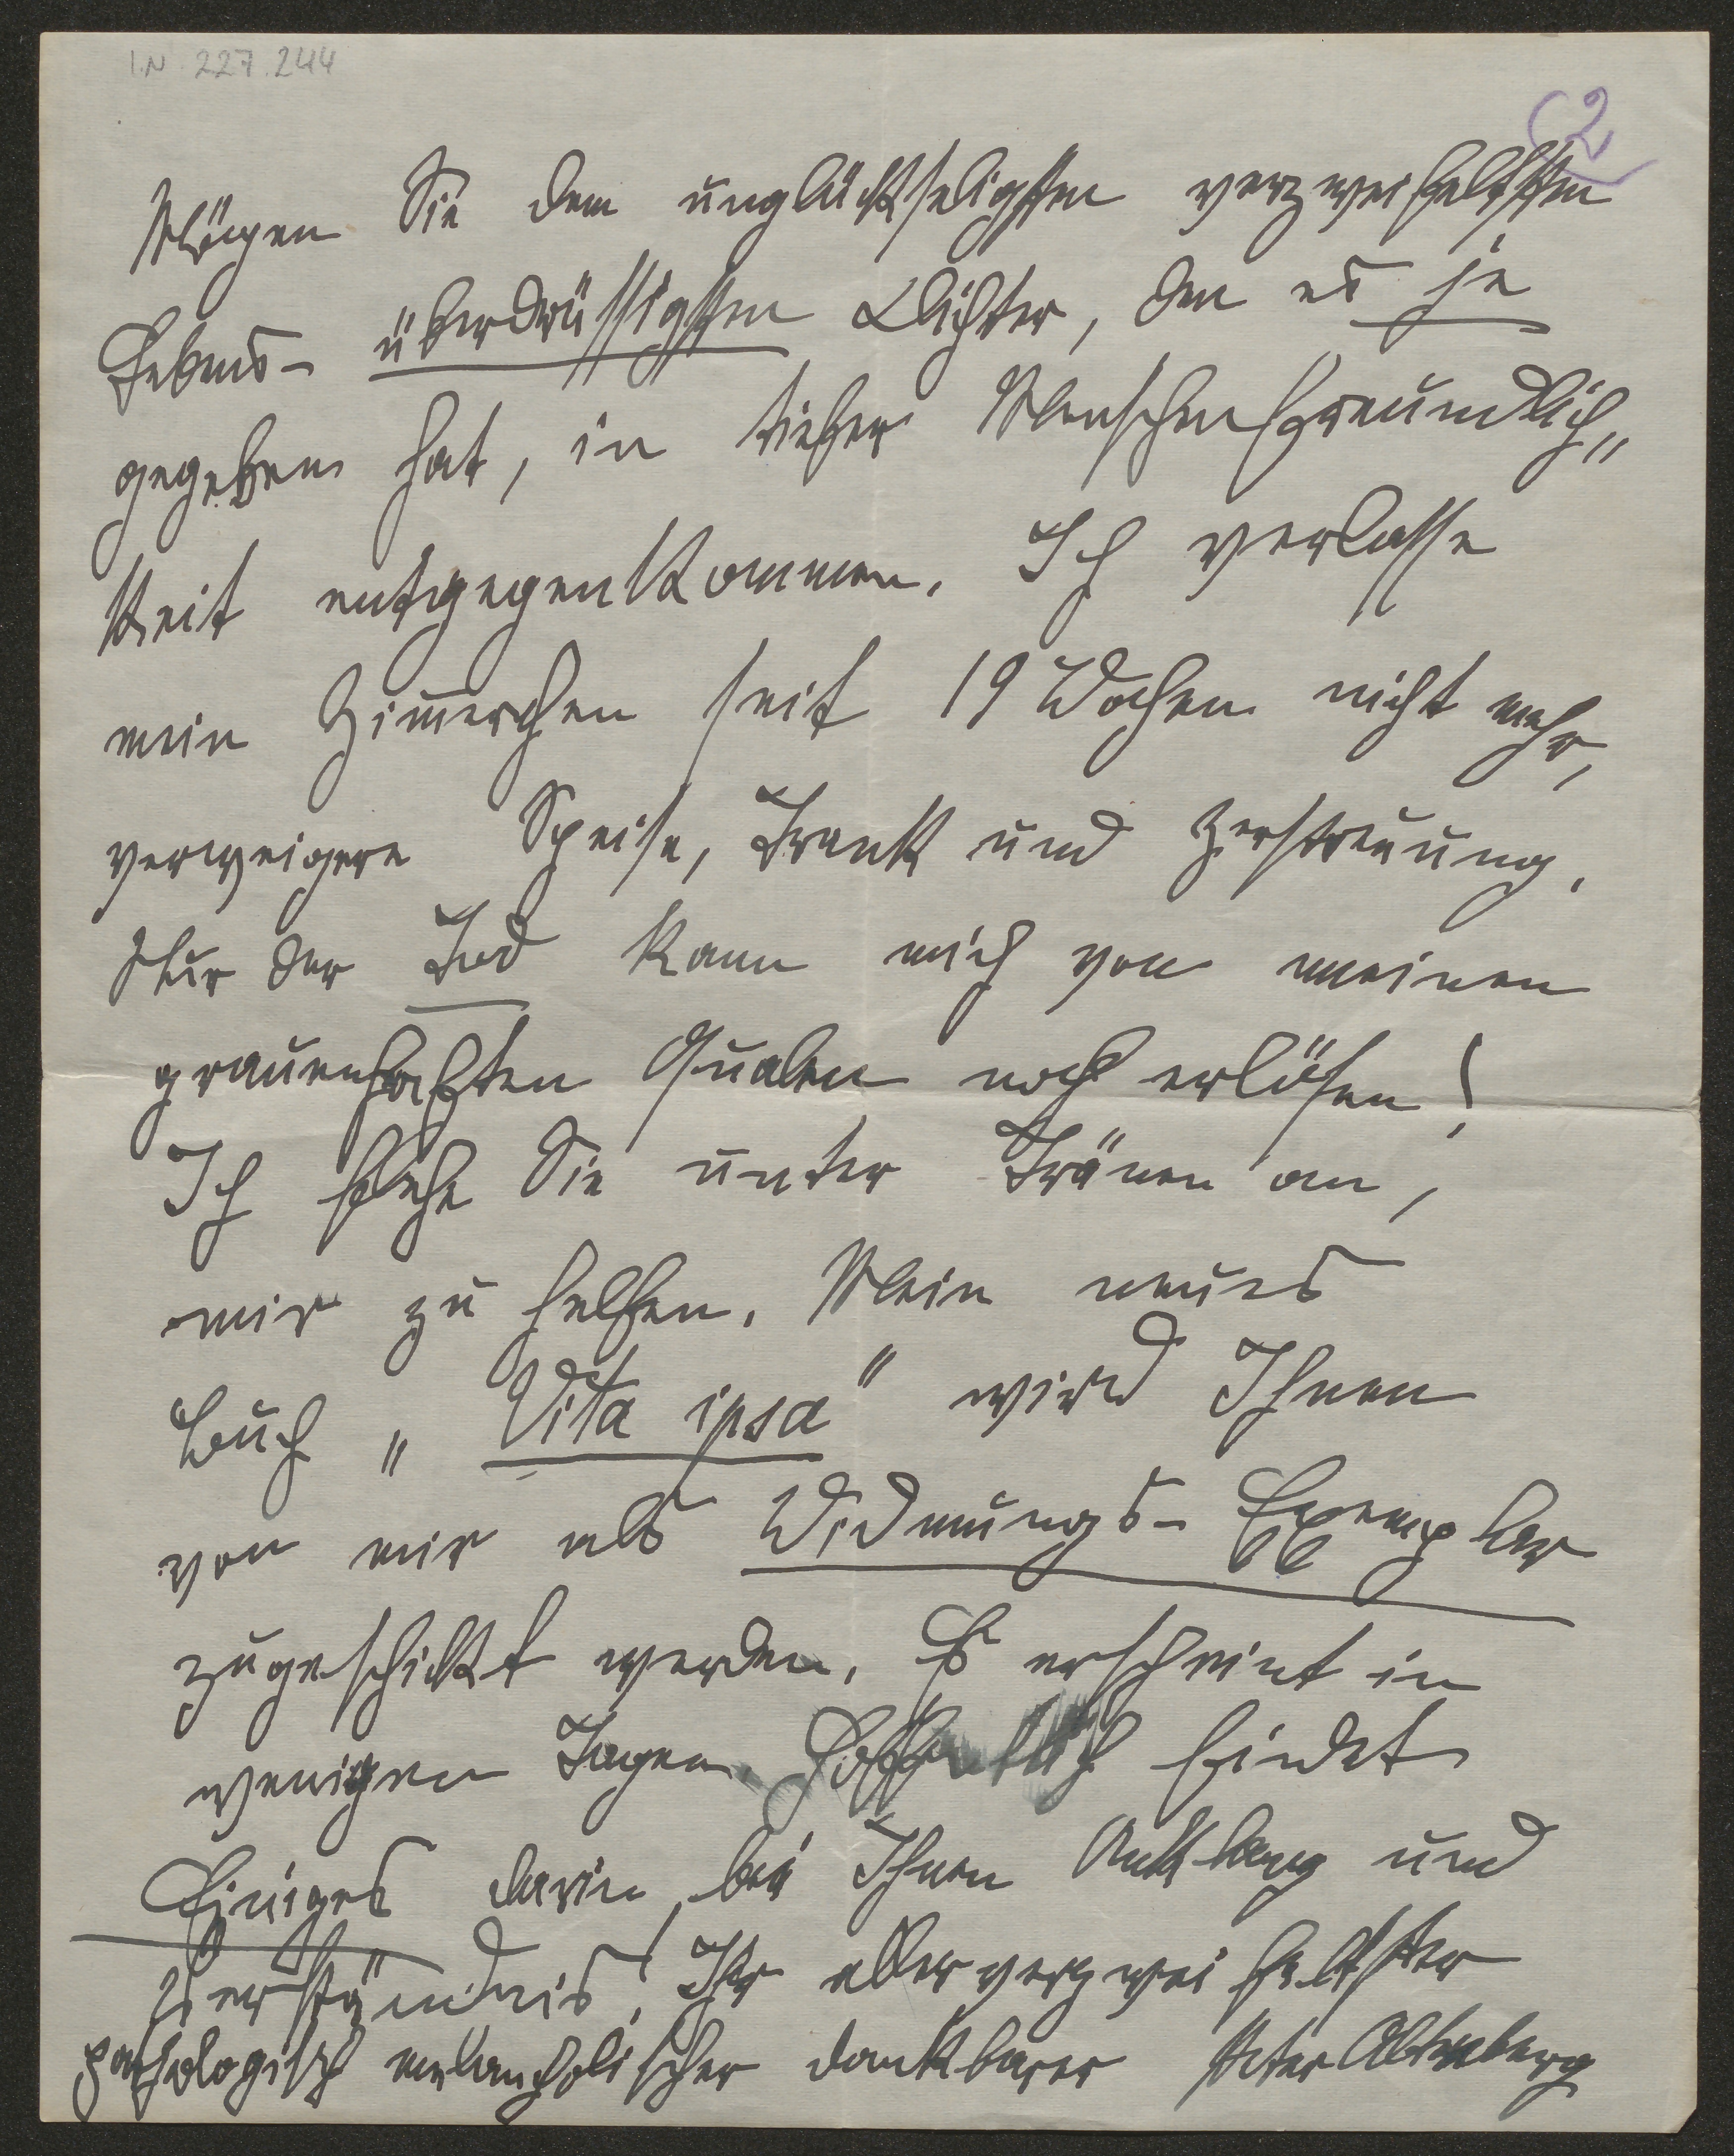 I.N. 227.244
2
Mögen Sie dem unglückseligsten verzweifeltsten
Lebens- überdrüssigsten Dichter, den es je
gegeben hat, in tiefer Menschenfreundlich„
keit entgegenkommen. Ich verlasse
mein Zim̅erchen seit 19 Wochen nicht mehr,
verweigere Speise, Trank und Zerstreuung.
Nur der Tod kann mich von meinen
grauenhaften Qualen noch erlösen!
Ich flehe Sie unter Tränen an,
mir zu helfen. Mein neues
Buch „Vita ipsa" wird Ihnen
von mir als Widmungs- Exemplar
zugeschickt werden. Es erscheint in
wenigen Tagen. Hoffentlich findet
Einiges darin bei Ihnen Anklang und
Verständnis! Ihr allerverzweifeltster
pathologisch melancholischer dankbarer Peter Altenberg